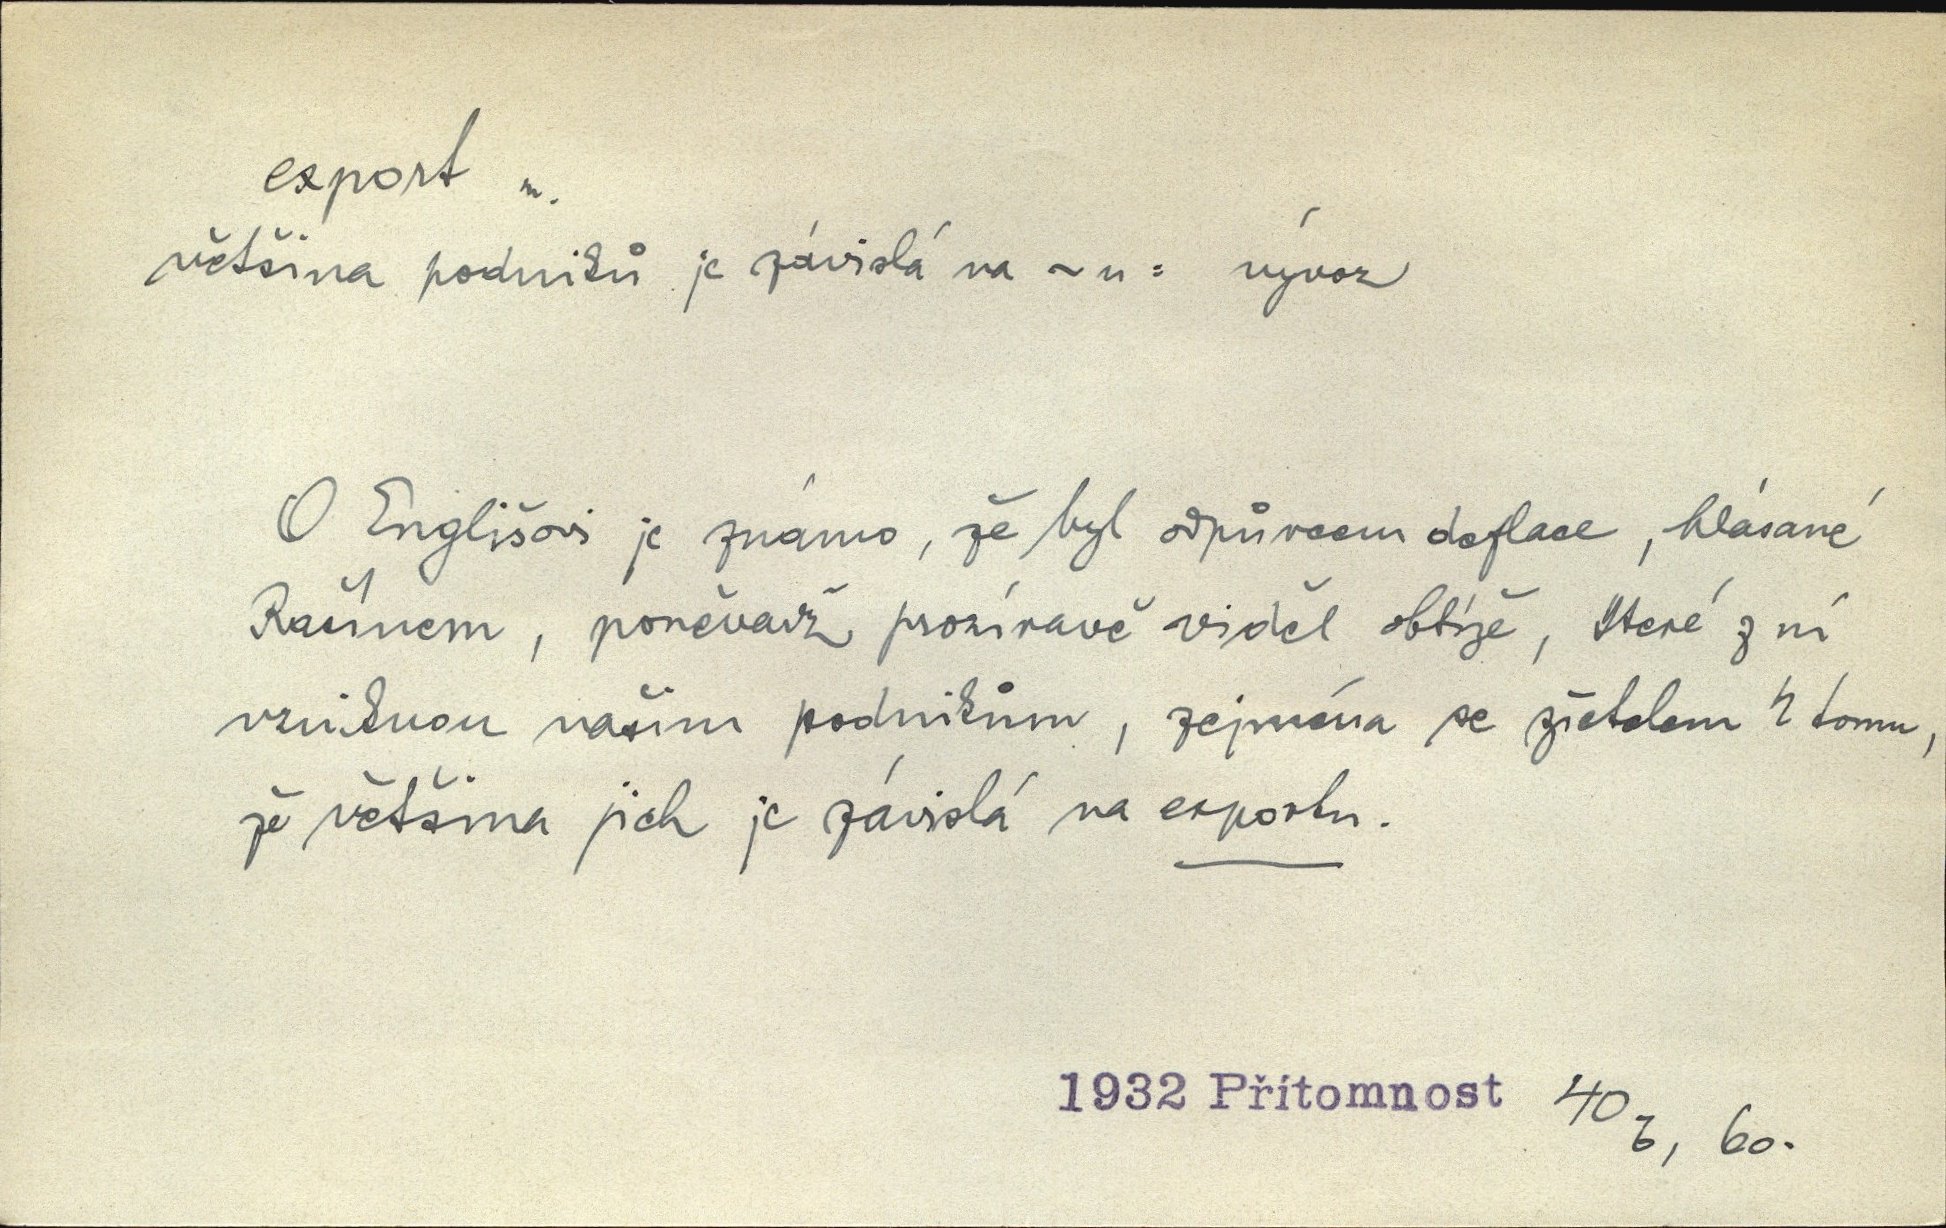 export m.
většina podniků je závislá na ~u = vývoz
O Englišovi je známo, že byl odpůrcem deflace, hlásané
Rašínem, poněvadž prozíravě viděl obtíže, které z ní
vzniknou našim podnikům, zejména se zřetelem k tomu,
že většina jich je závislá na exportu.
1932 Přítomnost 40, 60.